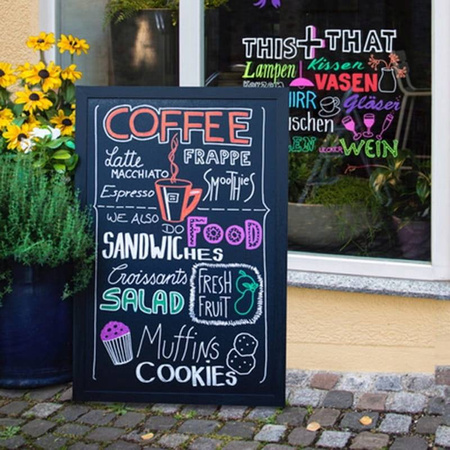 COFFEE
Latte
MACCHIATO
FRAPPE
Espresso
Smoothies
WE ALSO
DO
Food
SANDWICHES
Croissants
SALAD
FRESH
FRUIT
Muffins
COOKIES
THIS + THAT
Lampen
Kissen
VASEN
Gläser
WEIN